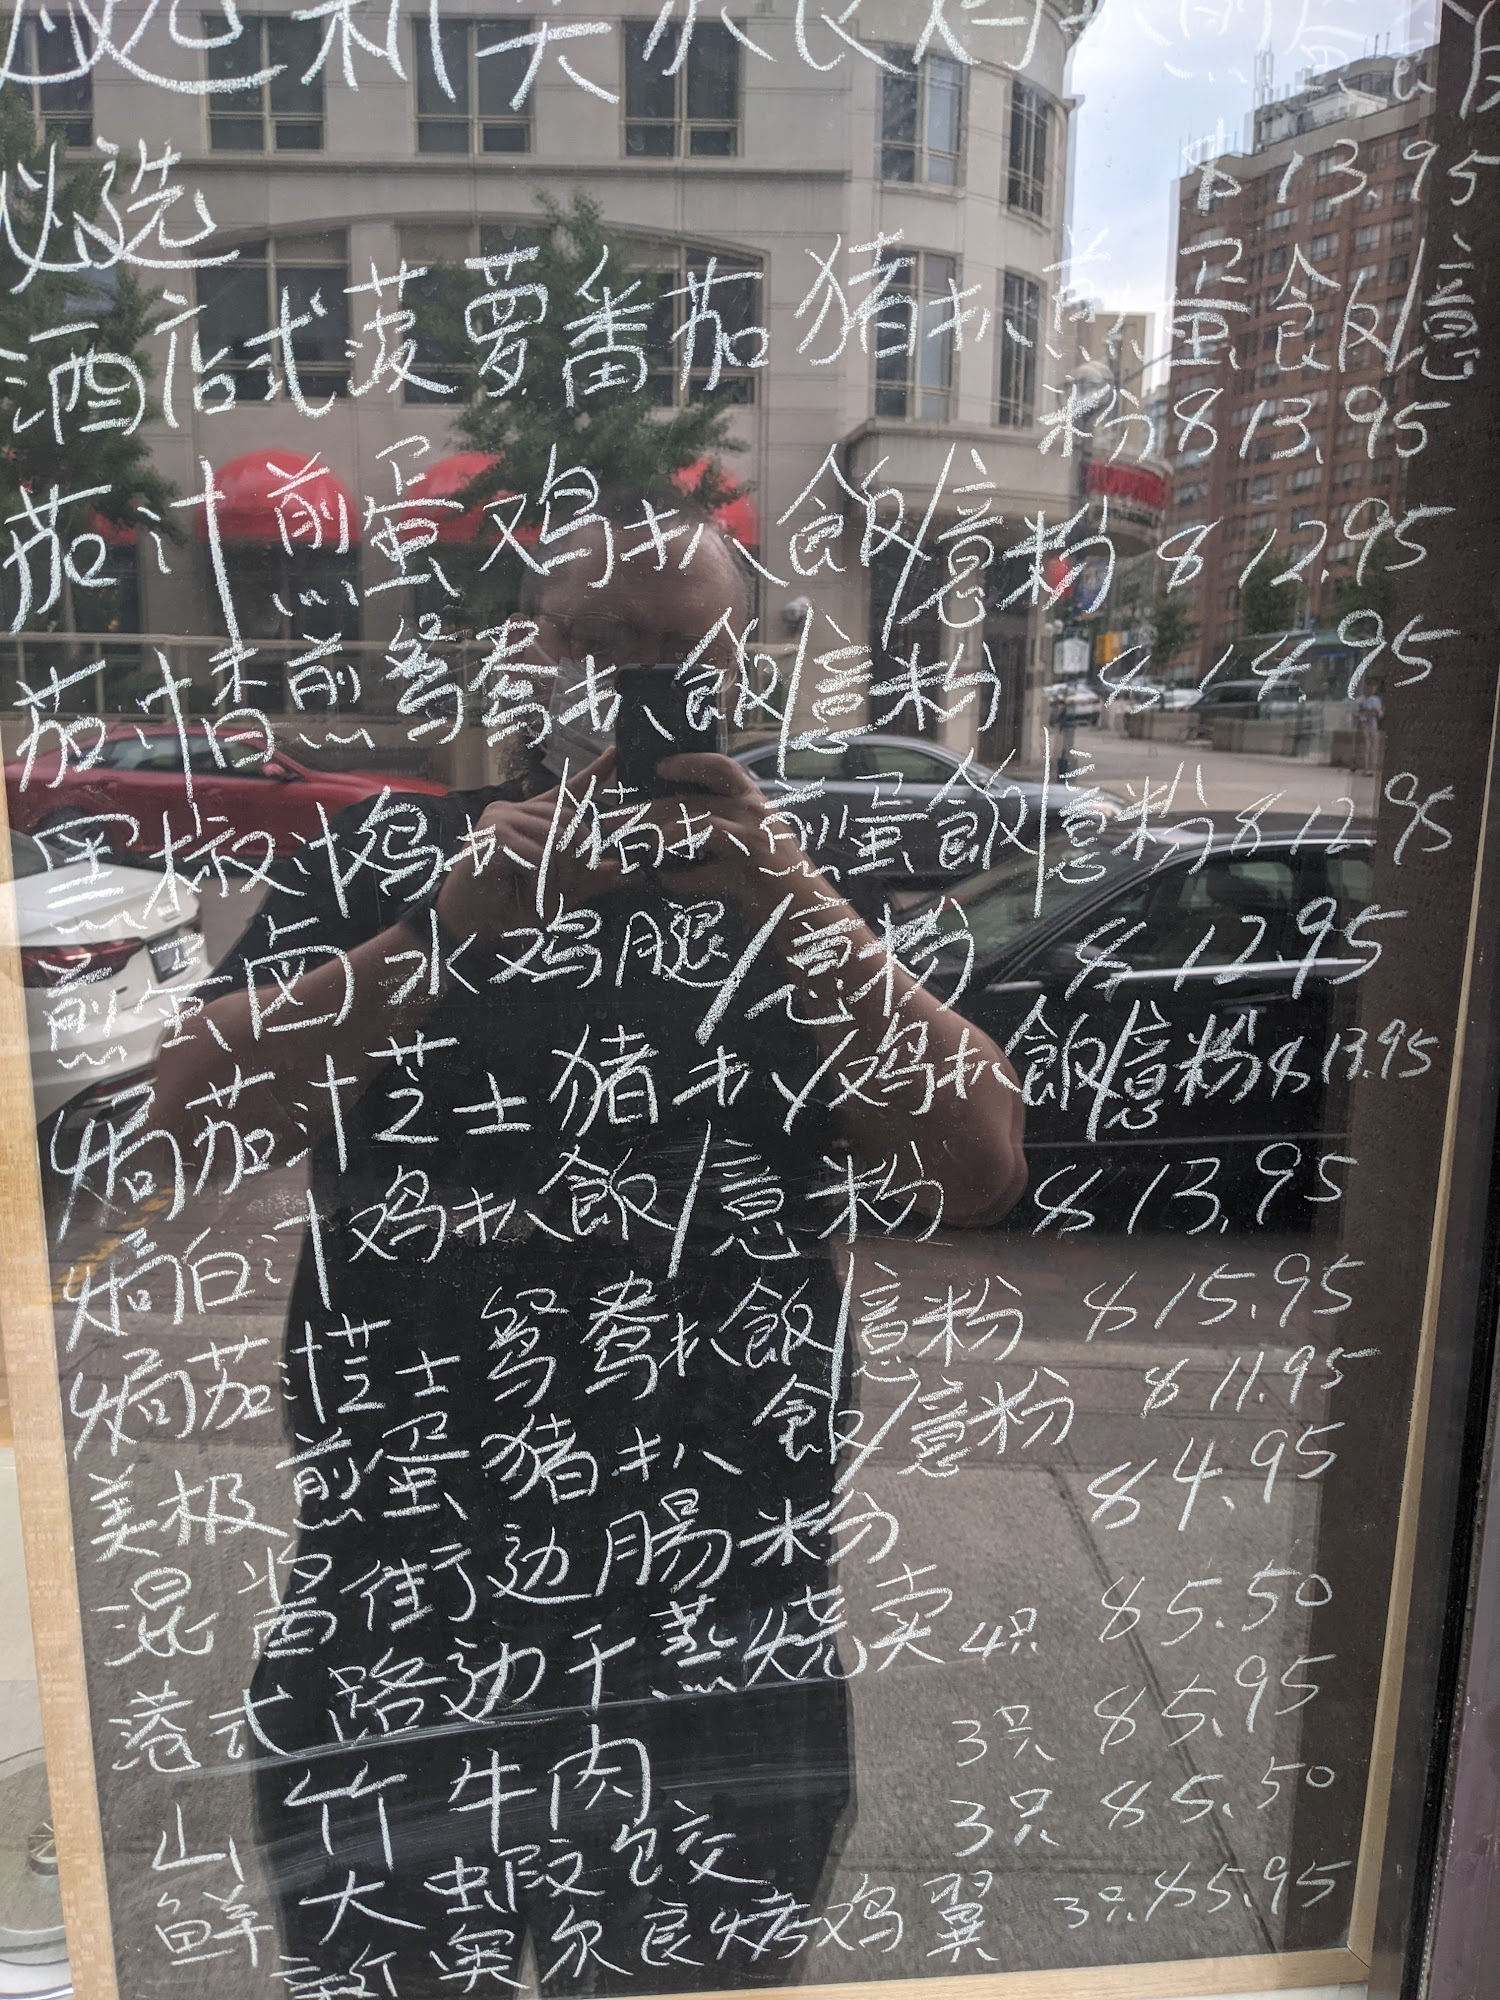 必选新奥尔良烤
$13.95
必选
酒店式菠萝番茄猪扒煎蛋飯/意
粉$13.95
茄汁煎蛋鸡扒飯/意粉$12.95
茄汁惜煎鸳鸯扒飯/意粉 $14.95
黑椒汁鸡扒/猪扒煎蛋飯/意粉$12.95
煎蛋卤水鸡腿/意粉 $12.95
焗茄汁芝士猪扒/鸡扒飯/意粉$13.95
焗白汁鸡扒飯/意粉 $13.95
焗茄汁芝士鸳鸯扒飯/意粉 $15.95
美极煎蛋猪扒 飯/意粉 $11.95
混酱街边腸粉 $4.95
港式路边干蒸烧卖4只 $5.50
山竹牛肉 3只 $5.95
鲜大虾饺 3只 $5.50
新奥尔良烤鸡翼 3只$5.95